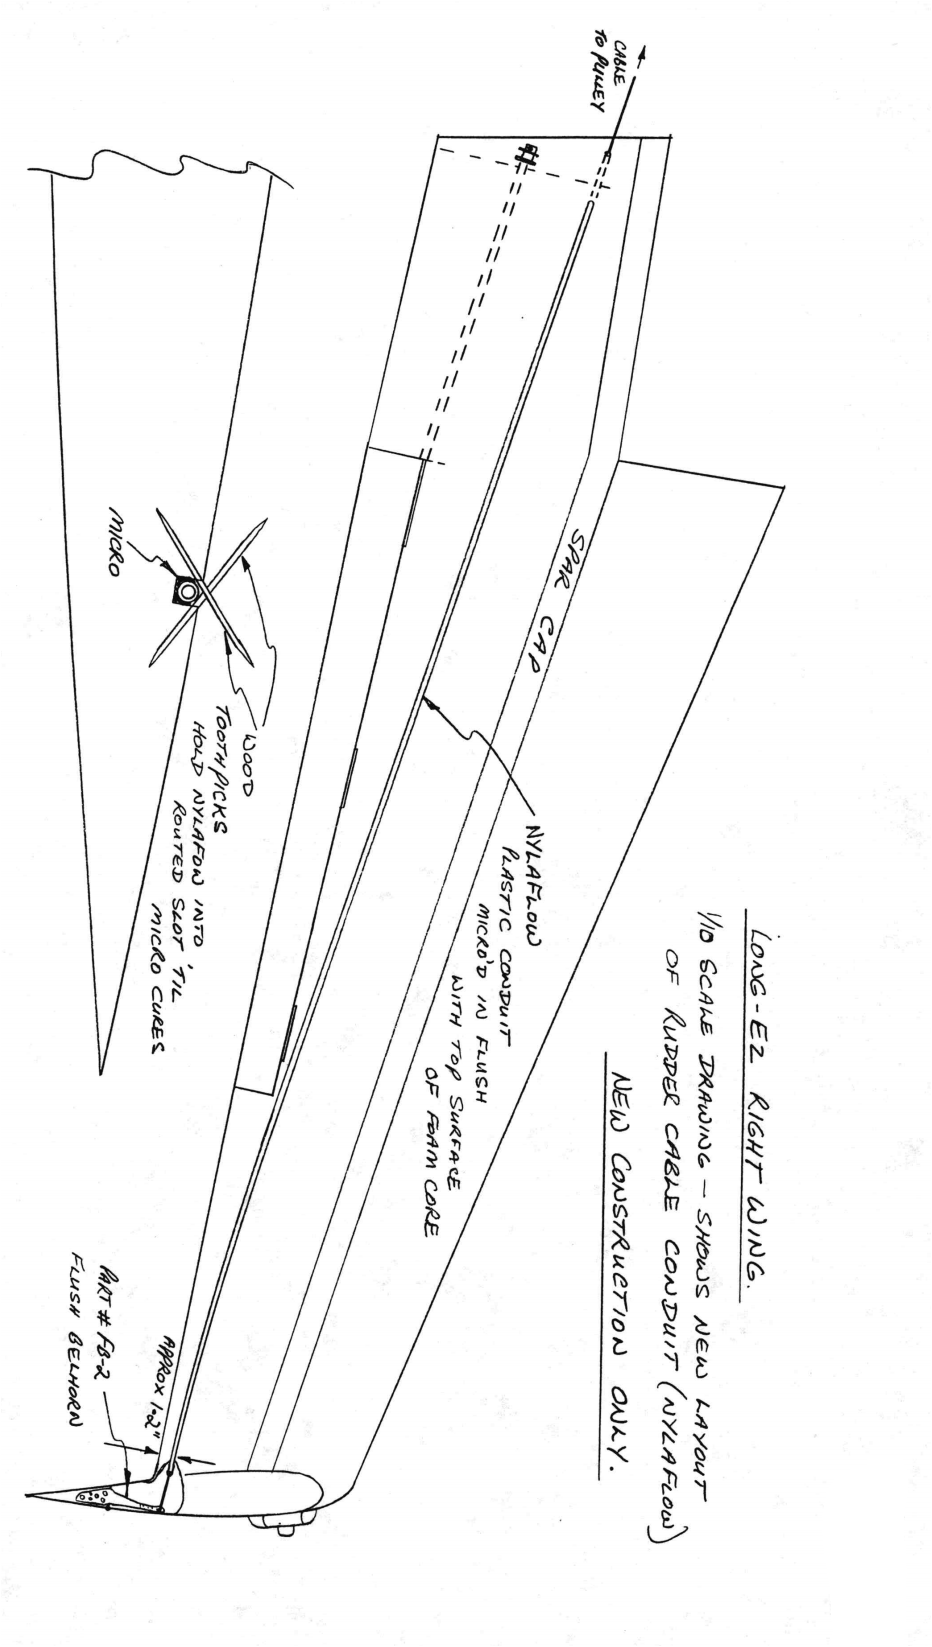 LONG-EZ RIGHT WING.
1/10 SCALE DRAWING - SHOWS NEW LAYOUT
OF RUDDER CABLE CONDUIT (NYLAFLOW)
NEW CONSTRUCTION ONLY.
CABLE
TO PULLEY
SPAR CAP
NYLAFLOW
PLASTIC CONDUIT
MICRO'D IN FLUSH
WITH TOP SURFACE
OF FOAM CORE
MICRO
WOOD
TOOTHPICKS
HOLD NYLAFLOW INTO
ROUTED SLOT 'TIL
MICRO CURES
APPROX 1.2"
PART # FB-2
FLUSH BELHORN